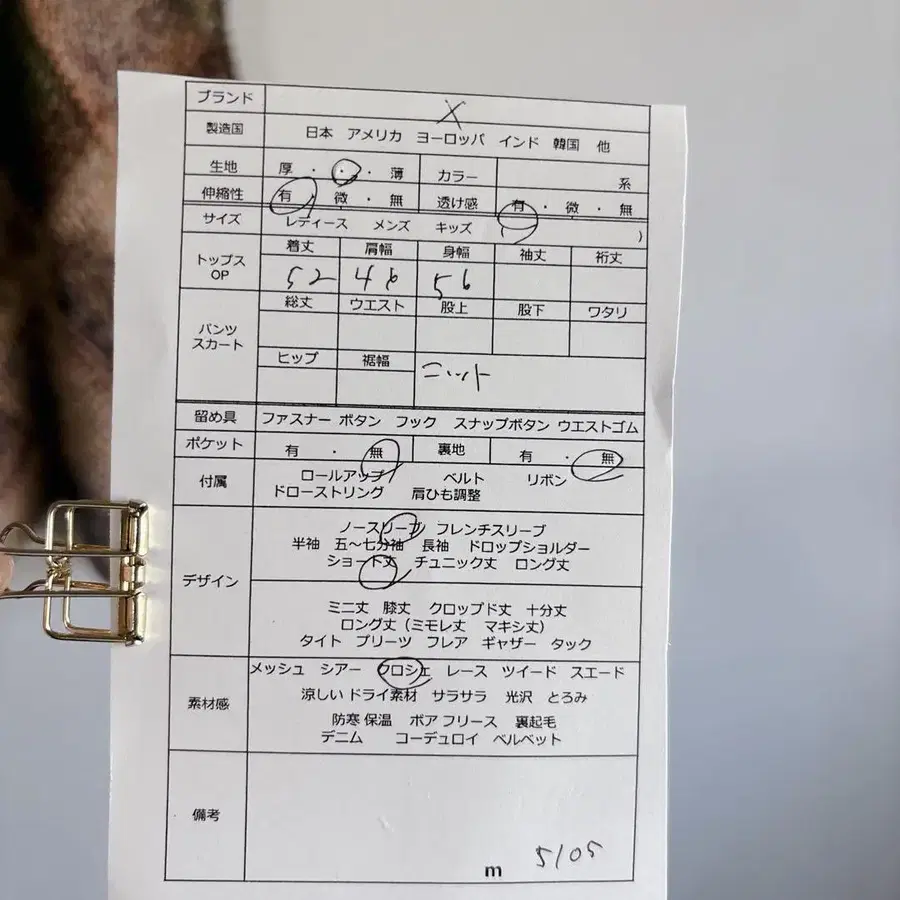 ブランド X
製造国 日本 アメリカ ヨーロッパ インド 韓国 他
生地 厚 ・ ・ ・ 薄 カラー 系
伸縮性 有 ・ 微 ・ 無 透け感 有 ・ 微 ・ 無
サイズ レディース メンズ キッズ ( )
トップス OP 着丈 肩幅 身幅 袖丈 裄丈
52 48 56
パンツ スカート 総丈 ウエスト 股上 股下 ワタリ
ヒップ 裾幅 ニット
留め具 ファスナー ボタン フック スナップボタン ウエストゴム
ポケット 有 ・ 無 裏地 有 ・ 無
付属 ロールアップ ベルト リボン
ドローストリング 肩ひも調整
デザイン ノースリーブ フレンチスリーブ
半袖 五〜七分袖 長袖 ドロップショルダー
ショート丈 チュニック丈 ロング丈
ミニ丈 膝丈 クロップド丈 十分丈
ロング丈(ミモレ丈 マキシ丈)
タイト プリーツ フレア ギャザー タック
素材感 メッシュ シアー クロシェ レース ツイード スエード
涼しい ドライ素材 サラサラ 光沢 とろみ
防寒 保温 ボア フリース 裏起毛
デニム コーデュロイ ベルベット
備考
m 5105